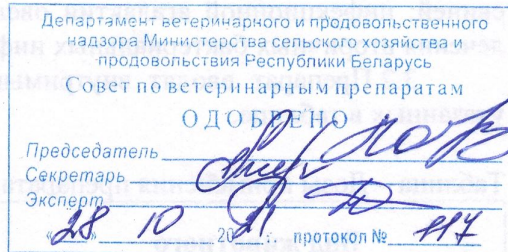 Департамент ветеринарного и продовольственного
надзора Министерства сельского хозяйства и
продовольствия Республики Беларусь
Совет по ветеринарным препаратам
ОДОБРЕНО
Председатель
Секретарь
Эксперт
«28» 10 2021 протокол № 117